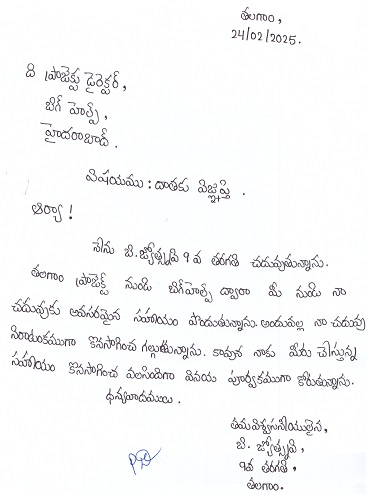 తలగాం,
24/02/2025.
ది ప్రాజెక్టు డైరెక్టర్,
బిగ్ హెల్ప్,
హైదరాబాద్.
విషయము : దాతకు విజ్ఞప్తి .
ఆర్యా !
నేను బి.జ్యోత్స్నవి 9 వ తరగతి చదువుతున్నాను.
తలగాం ప్రాజెక్ట్ నుండి బిగ్‌హెల్ప్ ద్వారా మీ నుండి నా
చదువుకు అవసరమైన సహాయం పొందుతున్నాను. అందువల్ల నా చదువు
నిరాటంకముగా కొనసాగించ గల్గుతున్నాను. కావున నాకు మీరు చేస్తున్న
సహాయం కొనసాగించ వలసిందిగా వినయ పూర్వకముగా కోరుతున్నాను.
ధన్యవాదములు .
తమ విశ్వసనీయులైన,
బి. జ్యోత్స్నవి,
9వ తరగతి,
తలగాం.